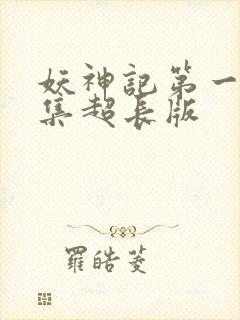 妖神記第一
集超長版
羅皓菱